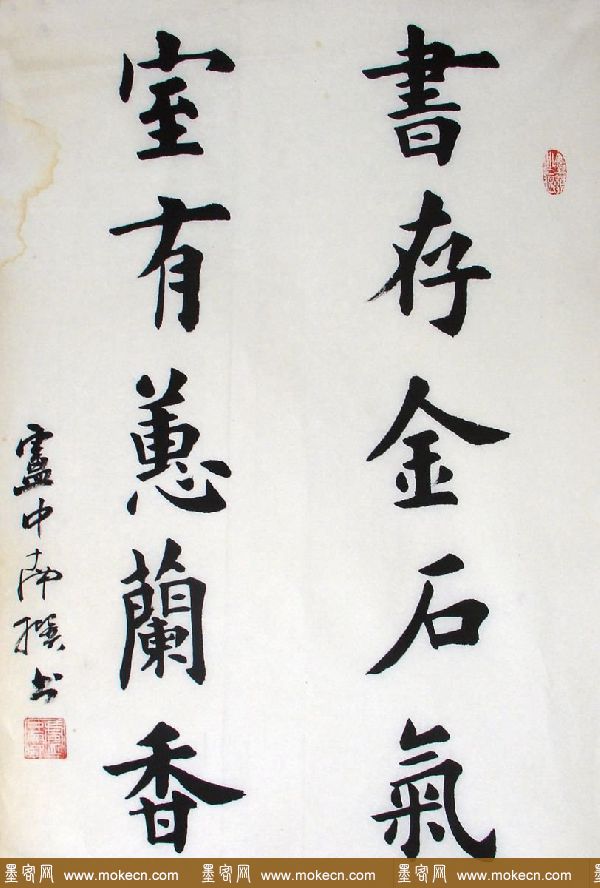 書存金石氣
室有蕙蘭香
盧中南撰书
墨客网 www.mokecn.com 墨客网 www.mokecn.com 墨客网 www.mokecn.com